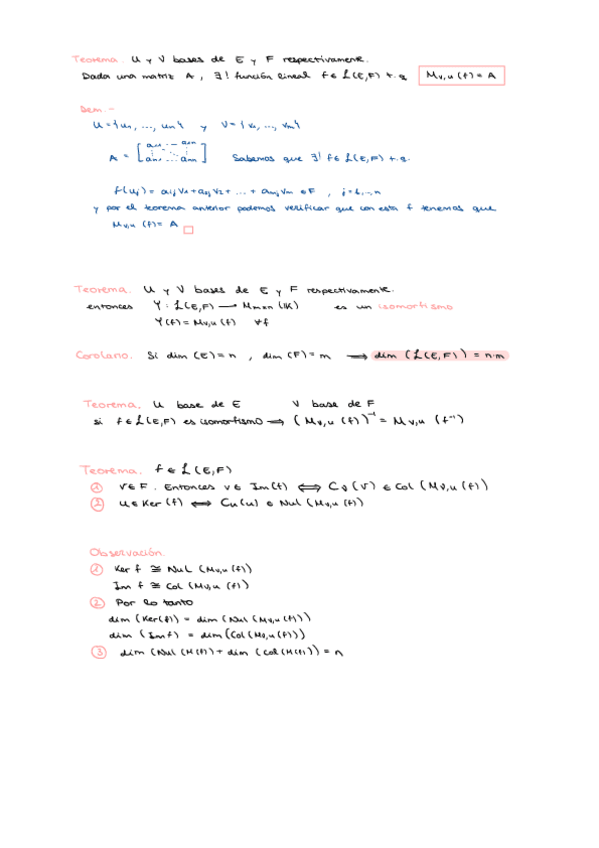 Teorema. U y V bases de E y F respectivamente.
Dada una matriz A, ∃! función lineal f ∈ L(E,F) t.q. M_{V,U}(f) = A
Dem.-
U = {u₁, ..., uₙ} y V = {v₁, ..., vₘ}
A = [a₁₁ ... a₁ₙ
aₘ₁ ... aₘₙ] Sabemos que ∃! f ∈ L(E,F) t.q.
f(uⱼ) = a₁ⱼv₁ + a₂ⱼv₂ + ... + aₘⱼvₘ ∈ F , j = 1, ..., n
y por el teorema anterior podemos verificar que con esta f tenemos que
M_{V,U}(f) = A □
Teorema. U y V bases de E y F respectivamente.
entonces Y : L(E,F) → M_{m×n}(IK) es un isomorfismo
Y(f) = M_{V,U}(f) ∀f
Corolario. Si dim (E) = n , dim (F) = m ⟹ dim (L(E,F)) = n·m
Teorema. U base de E V base de F
si f ∈ L(E,F) es isomorfismo ⟹ (M_{V,U}(f))⁻¹ = M_{V,U}(f⁻¹)
Teorema. f ∈ L(E,F)
① v ∈ F. Entonces v ∈ Im(f) ⟺ C_V(v) ∈ Col (M_{V,U}(f))
② u ∈ Ker(f) ⟺ C_U(u) ∈ Nul (M_{V,U}(f))
Observación.
① Ker f ≅ Nul (M_{V,U}(f))
Im f ≅ Col (M_{V,U}(f))
② Por lo tanto
dim (Ker(f)) = dim (Nul (M_{V,U}(f)))
dim (Imf) = dim (Col (M_{V,U}(f)))
③ dim (Nul (M(f)) + dim (Col (M(f))) = n